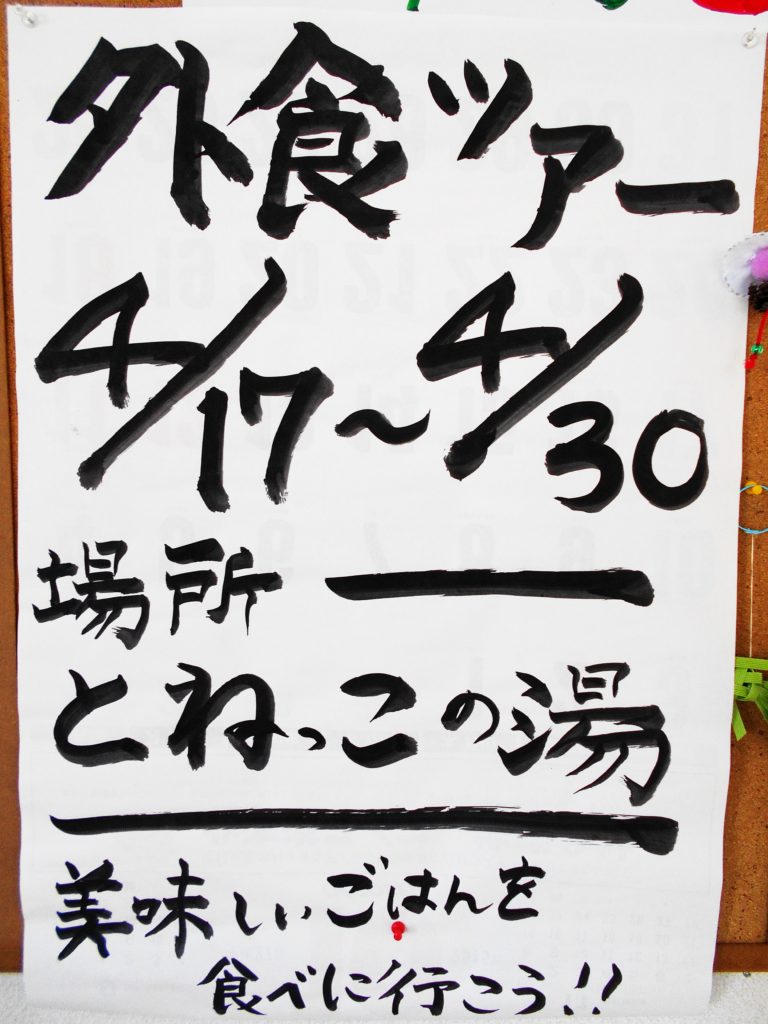 外食ツアー
4/17～4/30
場所
とねっこの湯
美味しいごはんを
食べに行こう!!